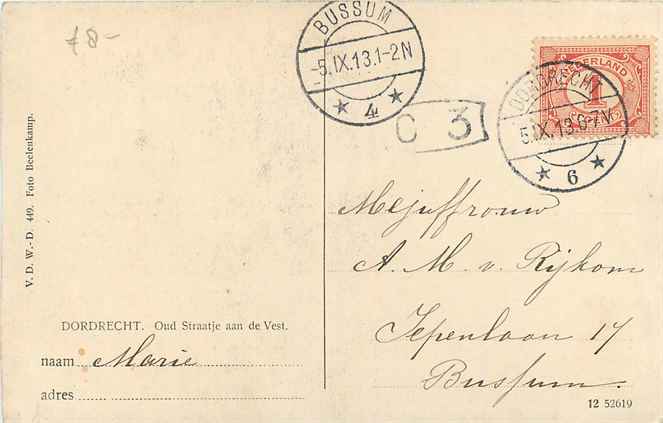 f8-
BUSSUM
-5.IX.13.1-2N
4
C 3
NEDERLAND
1
DORDRECHT
5.IX.13.6-7V
6
V. D. W.-D. 440. Foto Beelenkamp.
Mejuffrouw
A. M. v. Rijkom
Iepenlaan 17
Bussum.
DORDRECHT. Oud Straatje aan de Vest.
naam Marie
adres
12 52619